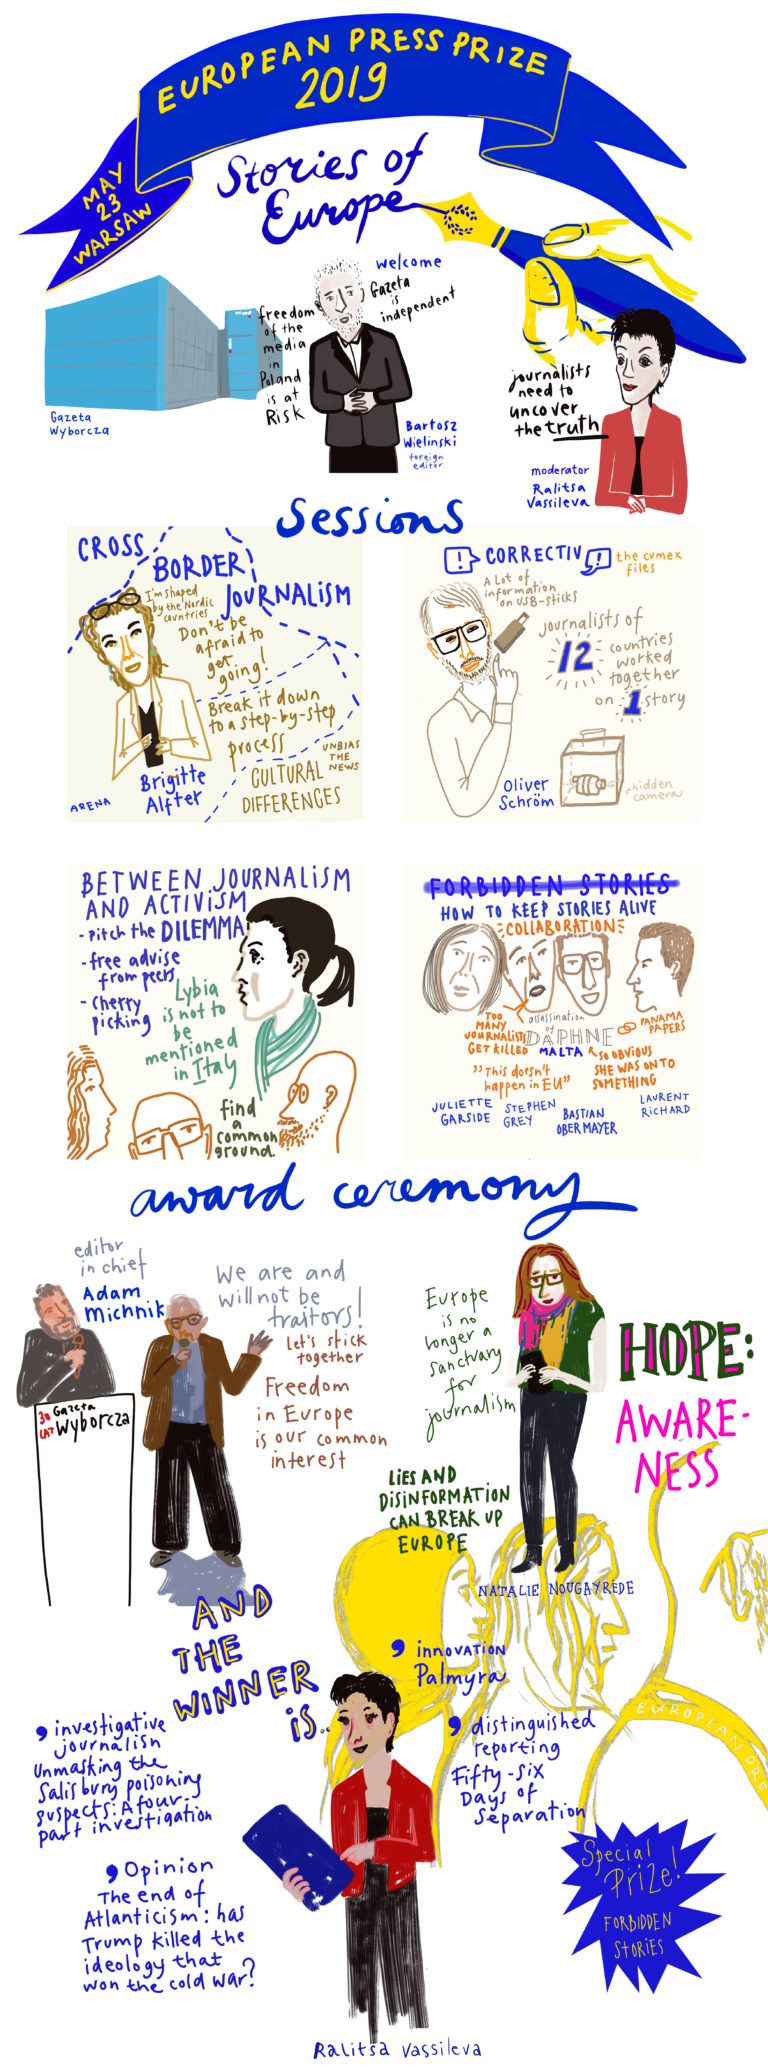 EUROPEAN PRESS PRIZE
2019
MAY
23
WARSAW
Stories of
Europe
welcome
Gazeta
is
independent
freedom
of the
media
in
Poland
is at
Risk
Gazeta
Wyborcza
Bartosz
Wielinski
foreign
editor
journalists
need to
uncover
the truth
moderator
Ralitsa
Vassileva
Sessions
CROSS
BORDER
JOURNALISM
I'm shaped
by the Nordic
countries
Don't be
afraid to
get
going!
Break it down
to a step-by-step
process
UNBIAS
THE
NEWS
CULTURAL
DIFFERENCES
Brigitte
Alfter
ARENA
CORRECTIV
the cumex
files
A Lot of
information
on USB-sticks
journalists of
12
countries
worked
together
on 1 story
Oliver
Schröm
hidden
camera
BETWEEN JOURNALISM
AND ACTIVISM
- Pitch the DILEMMA
- free advise
from peers
- Cherry
picking
Lybia
is not to
be
mentioned
in Italy
find
a
common
ground.
FORBIDDEN STORIES
HOW TO KEEP STORIES ALIVE
COLLABORATION
TOO
MANY
JOURNALISTS
GET KILLED
assassination
of
DAPHNE
MALTA
PANAMA
PAPERS
SO OBVIOUS
SHE WAS ON TO
SOMETHING
"This doesn't
happen in EU"
JULIETTE
GARSIDE
STEPHEN
GREY
BASTIAN
OBERMAYER
LAURENT
RICHARD
award ceremony
editor
in chief
Adam
Michnik
We are and
will not be
traitors!
Let's stick
together
Freedom
in Europe
is our common
interest
30
LAT
Gazeta
Wyborcza
Europe
is no
longer a
sanctuary
for
journalism
HOPE:
AWARE-
NESS
LIES AND
DISINFORMATION
CAN BREAK UP
EUROPE
NATALIE NOUGAYRÈDE
AND
THE
WINNER
is...
innovation
Palmyra
investigative
journalism
Unmasking the
Salisbury poisoning
suspects: A four-
part investigation
distinguished
reporting
Fifty-Six
Days of
Separation
EUROPEAN PRE
Opinion
The end of
Atlanticism: has
Trump killed the
ideology that
won the cold war?
Special
Prize!
FORBIDDEN
STORIES
Ralitsa Vassileva